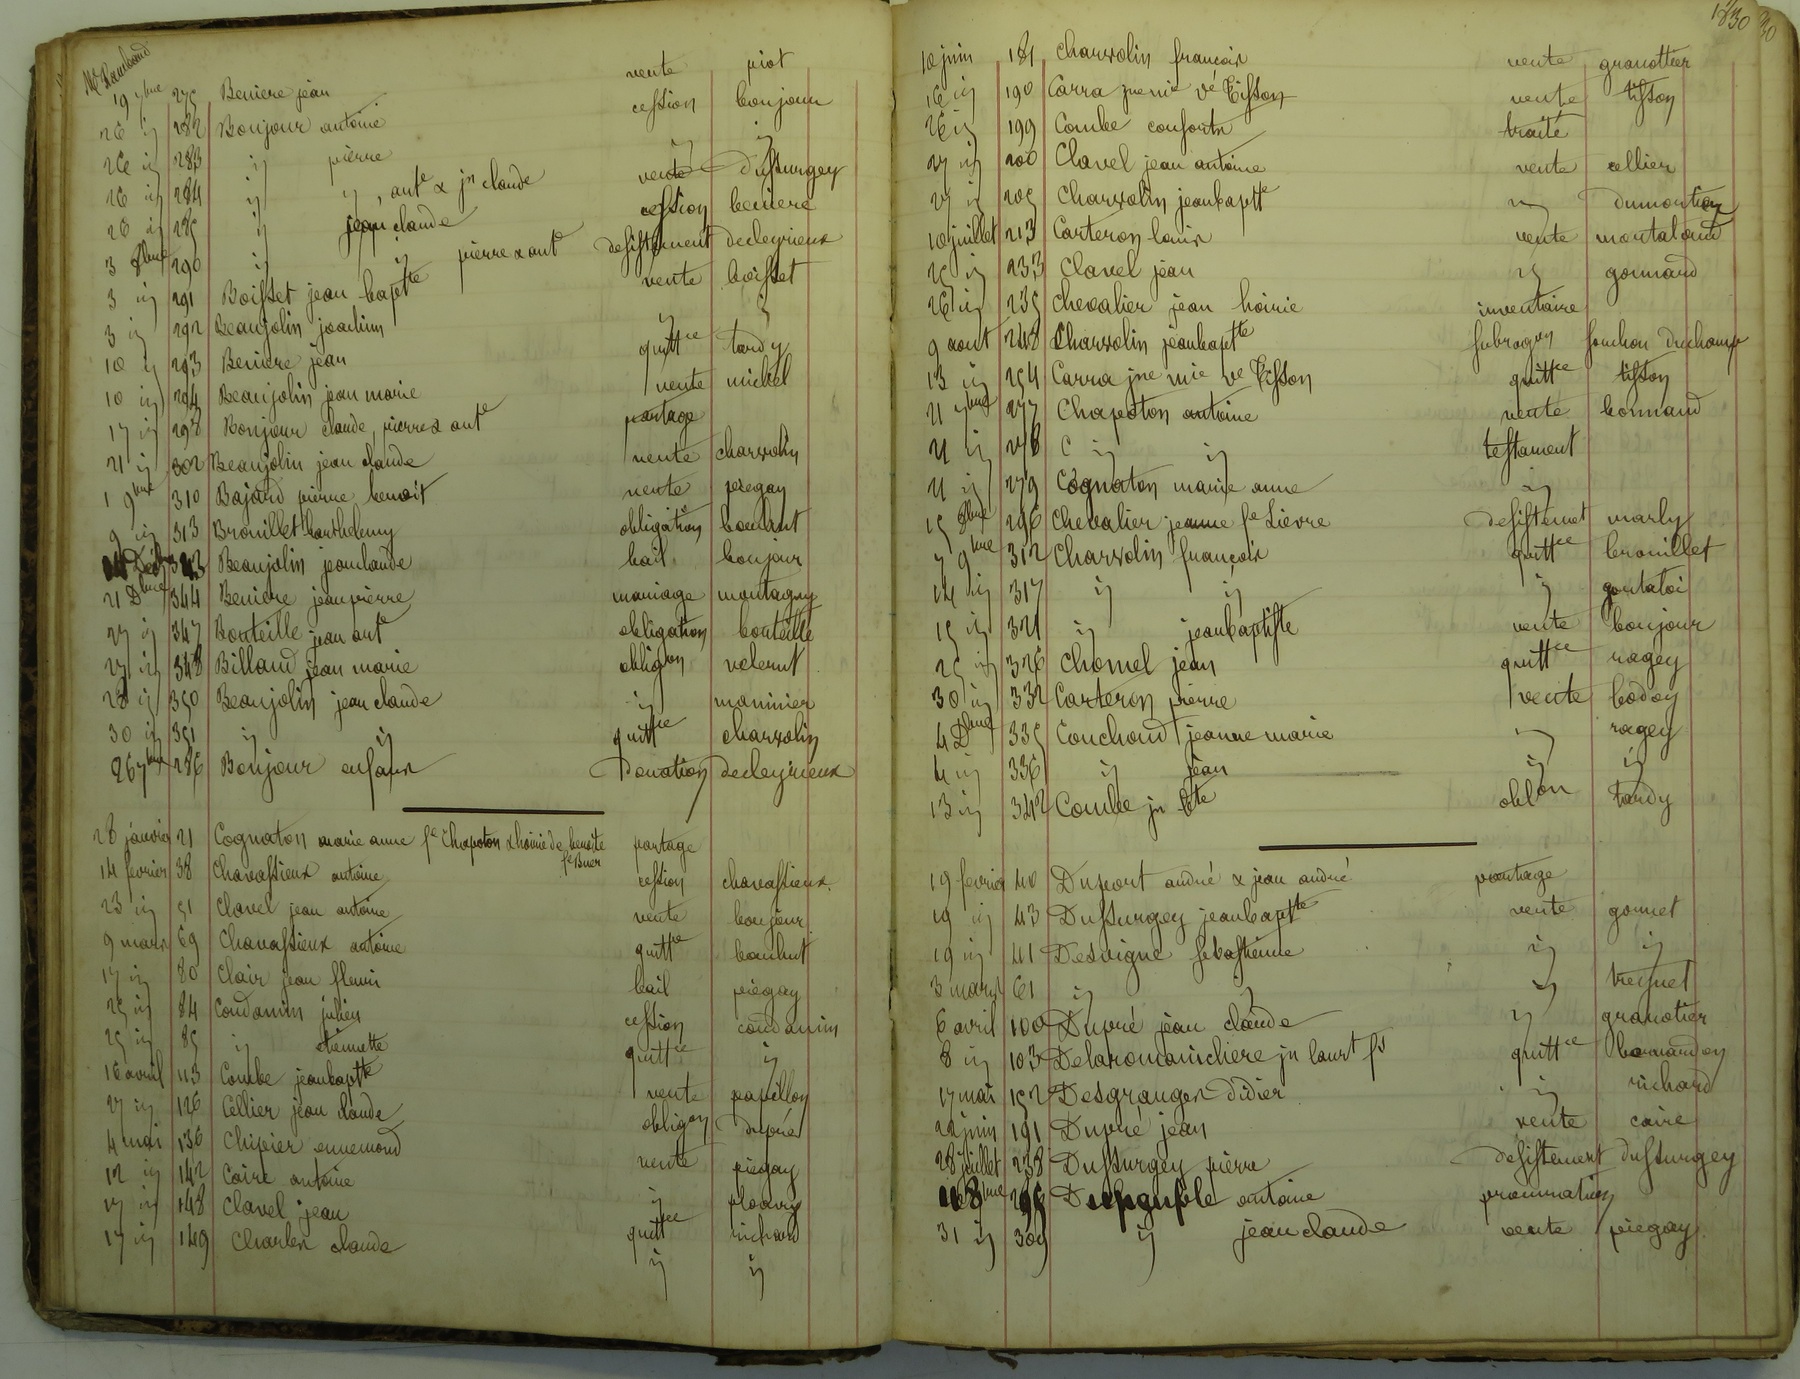 Mr Rambaud
19 7bre 275 Beniere jean vente piot
26 id 282 Boujour antoine cession boujour
26 id 283 id pierre id id
26 id 284 id id, ante & jn claude vente dussurgey
26 id 285 id jean claude cession beniere
3 8bre 290 id id pierre x ant desistement decleyrieux
3 id 291 Boisset jean baptte vente boisset
3 id 292 Beaujolin joachim id id
10 id 293 Beniere jean quittce tardy
10 id 294 Beaujolin jean marie vente michel
17 id 298 Boujour claude, pierre & ante partage
21 id 302 Beaujolin jean claude vente charvolin
1 9bre 310 Bajard pierre benoit vente piegay
9 id 313 Brouillet barthelemy obligation
343 Beaujolin jean claude bail boujour
21 Dbre 344 Beniere jean pierre mariage montagny
27 id 347 Bouteille jean ante obligation bouteille
27 id 348 Billaud jean marie obligon velerut
28 id 350 Beaujolin jean claude id marinier
30 id 351 id id quittce charvolin
26 7bre 286 Boujour enfans Donation decleyrieux
28 janvier 21 Cognaton marie anne fe Chapoton & hoirie de benoite partage
fe Buer
14 fevrier 38 Chavassieux antoine cession chavassieux
23 id 51 Clavel jean antoine vente boujour
9 mars 69 Chavassieux antoine quittce
17 id 80 Clair jean fleuri bail piegay
25 id 84 Condamin julien cession condamin
25 id 85 id etiennette quittce id
16 avril 113 Combe jean baptte vente papillon
27 id 126 Cellier jean claude obligon dupré
4 mai 136 Chipier ennemond vente piegay
12 id 142 Caire antoine
17 id 148 Clavel jean id
17 id 149 Charles claude quittce richard
id id
1830 30
10 juin 181 Charvolin françois vente granottier
16 id 190 Carra jne mie ve Tisson vente tisson
26 id 199 Combe consorts traité
27 id 200 Clavel jean antoine vente cellier
27 id 205 Charvolin jean baptte id dumortier
10 juillet 213 Carteron louis vente montaland
25 id 233 Clavel jean id gonnard
26 id 235 Chevalier jean hoirie inventaire
9 aout 248 Charvolin jean baptte subrogon souchon duchamp
13 id 254 Carra jne mie ve Tisson quittce tisson
21 7bre 277 Chapoton antoine vente bonnard
21 id 278 C id id testament
21 id 279 Cognaton marie anne id
15 8bre 296 Chevalier jeanne fe Lievre desistemet marly
7 9bre 312 Charvolin françois quittce brouillet
14 id 317 id id id
15 id 321 id jean baptiste vente boujour
25 id 326 Chomel jean quittce ragey
30 id 332 Carteron pierre vente bodoy
4 Dbre 335 Couchoud jeanne marie id ragey
4 id 336 id jean id id
13 id 342 Combe jn bte oblon tardy
19 fevrier 40 Duport andré & jean andré partage
19 id 43 Dussurgey jean baptte vente gonnet
19 id 41 Desvigne sebastienne id id
3 mars 61 id id id
6 avril 100 Dupré jean claude id granotier
8 id 103 Delaromanichere jn laurt fs quittce
17 mai 152 Desgranges Didier id richard
22 juin 191 Dupré jean vente caire
28 juillet 238 Dussurgey pierre desistement dussurgey
antoine procuration
31 id 309 id jean claude vente piegay